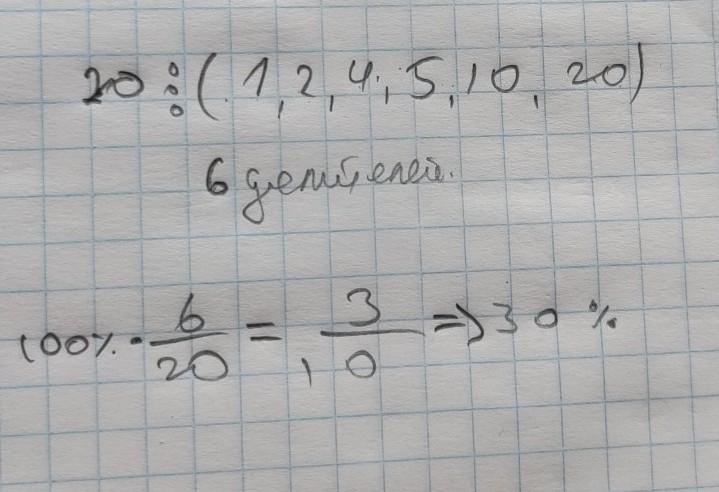 20⋮(1,2,4,5,10,20)
6 делителей.
100%·6/20=3/10⇒30%